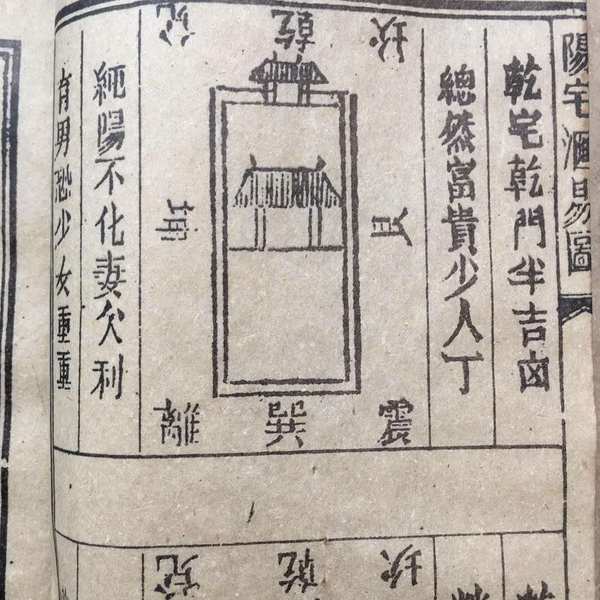 陽宅滙易圖
乾宅乾門半吉凶
總然富貴少人丁
坎 乾 兌
艮 坤
震 巽 離
純陽不化妻欠利
有男恐少女重重
坎 乾 兌